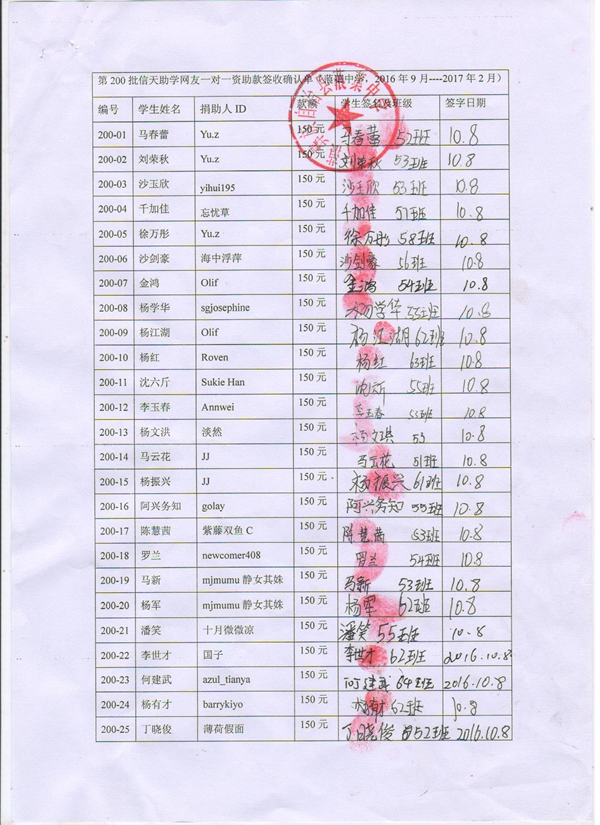 第 200 批信天助学网友一对一资助款签收确认单（蒗蕖中学，2016 年 9 月----2017 年 2 月）
编号 学生姓名 捐助人 ID 款额 学生签名及班级 签字日期
200-01 马春蕾 Yu.z 150 元 马春蕾 52班 10.8
200-02 刘荣秋 Yu.z 150 元 刘荣秋 53班 10.8
200-03 沙玉欣 yihui195 150 元 沙玉欣 53班 10.8
200-04 千加佳 忘忧草 150 元 千加佳 57班 10.8
200-05 徐万彤 Yu.z 150 元 徐万彤 58班 10.8
200-06 沙剑豪 海中浮萍 150 元 沙剑豪 56班 10.8
200-07 金鸿 Olif 150 元 金鸿 54班 10.8
200-08 杨学华 sgjosephine 150 元 杨学华 55班 10.8
200-09 杨江湖 Olif 150 元 杨江湖 62班 10.8
200-10 杨红 Roven 150 元 杨红 63班 10.8
200-11 沈六斤 Sukie Han 150 元 沈六斤 55班 10.8
200-12 李玉春 Annwei 150 元 李玉春 55班 10.8
200-13 杨文洪 淡然 150 元 杨文洪 53 10.8
200-14 马云花 JJ 150 元 马云花 51班 10.8
200-15 杨振兴 JJ 150 元 杨振兴 61班 10.8
200-16 阿兴务知 golay 150 元 阿兴务知 55班 10.8
200-17 陈慧茜 紫藤双鱼 C 150 元 陈慧茜 53班 10.8
200-18 罗兰 newcomer408 150 元 罗兰 54班 10.8
200-19 马新 mjmumu 静女其姝 150 元 马新 53班 10.8
200-20 杨军 mjmumu 静女其姝 150 元 杨军 62班 10.8
200-21 潘笑 十月微微凉 150 元 潘笑 55班 10.8
200-22 李世才 国子 150 元 李世才 62班 2016.10.8
200-23 何建武 azul_tianya 150 元 何建武 64班 2016.10.8
200-24 杨有才 barrykiyo 150 元 杨有才 62班 10.8
200-25 丁晓俊 薄荷假面 150 元 丁晓俊 52班 2016.10.8